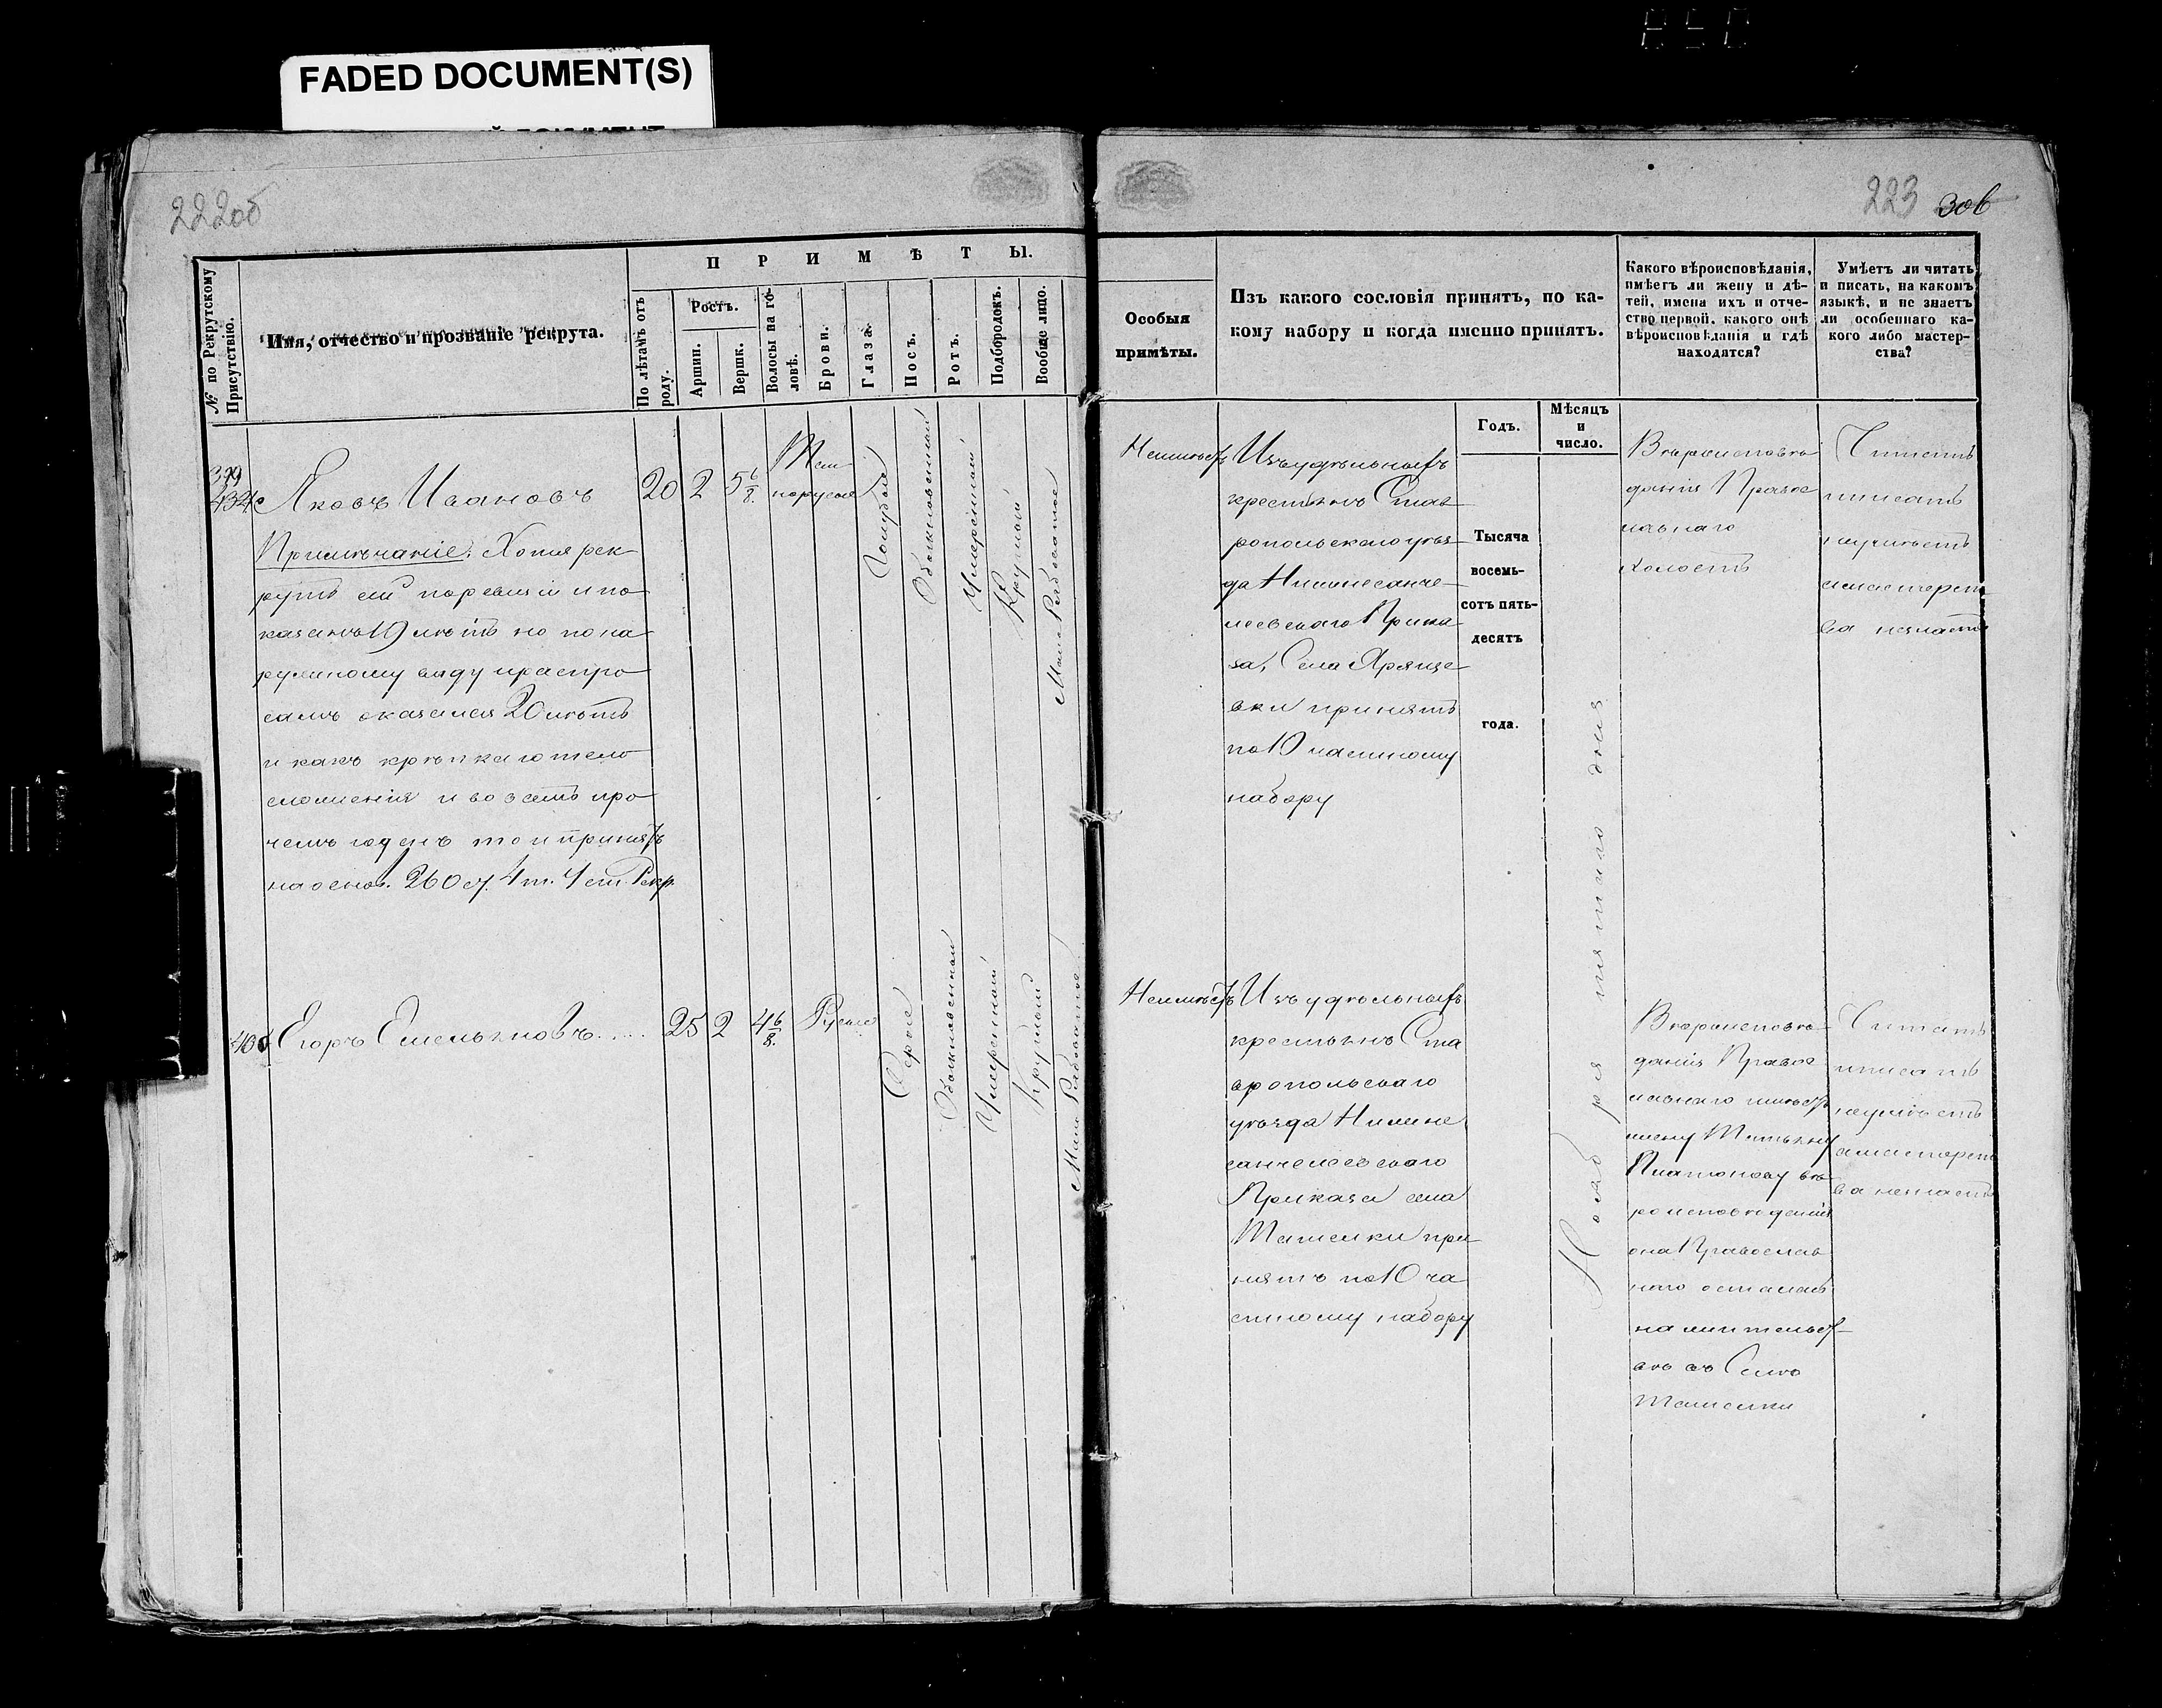 FADED DOCUMENT(S)
222об
223
306
№ по Рекрутскому Присутствію.
Имя, отчество и прозваніе рекрута.
ПРИМѢТЫ.
По лѣтамъ отъ роду.
Ростъ.
Аршин.
Вершк.
Волосы на головѣ.
Брови.
Глаза.
Носъ.
Ротъ.
Подбородокъ.
Вообще лицо.
Особыя
примѣты.
Изъ какого сословія принятъ, по ка-
кому набору и когда именно принятъ.
Какого вѣроисповѣданія,
имѣетъ ли жену и дѣ-
тей, имена ихъ и отче-
ство первой, какого онѣ
вѣроисповѣданія и гдѣ
находятся?
Умѣетъ ли читать
и писать, на какомъ
языкѣ, и не знаетъ
ли особеннаго ка-
кого либо мастер-
ства?
Годъ.
Мѣсяцъ
и
число.
399
Яковъ Ивановъ
20 2 5 6/8.
Тем-
норусые
Голубые
Обыкновенный
Умеренный
Круглый
Мало Рябоватое
Примѣчаніе: Хотя рек-
рутъ сей по ревизіи и по
казанъ 19 лѣтъ но по на
ружному виду и распро
самъ оказался 20 лѣтъ
и какъ крѣпкаго тело
сложенія и во всемъ про
чемъ годенъ то и принятъ
на основ. 260 ст. 4 т. Рекр.
Неимѣетъ
Изъ удѣльныхъ
крестьянъ Став
ропольскаго уѣз
да Нижнесанче
леевскаго Прика
за, Села
вки принятъ
по 10 частному
набору
Тысяча
восемь-
сотъ пять-
десятъ
года.
Ноября пятаго дня
Вѣроисповѣ
данія Правос
лавнаго
холостъ
Читать
писать
неумѣетъ
мастерст
ва незнаетъ
400
Егоръ Емельяновъ.....
25 2 4 6/8.
Русые
Серые
Обыкновенный
Умеренный
Круглый
Мало Рябоватое
Неимѣетъ
Изъ удѣльныхъ
крестьянъ Ста
вропольскаго
уѣзда Нижне
санчелеевскаго
Приказа села
Ташелки при
нятъ по 10 ча
стному набору
Вѣроисповѣ
данія Правос
лавнаго имѣетъ
жену Татьяну
Платонову вѣ
роисповѣданія
она Православ
наго осталась
на жительст
вѣ въ Селѣ
Ташелки
Читать
писать
неумѣетъ
мастерст
ва незнаетъ